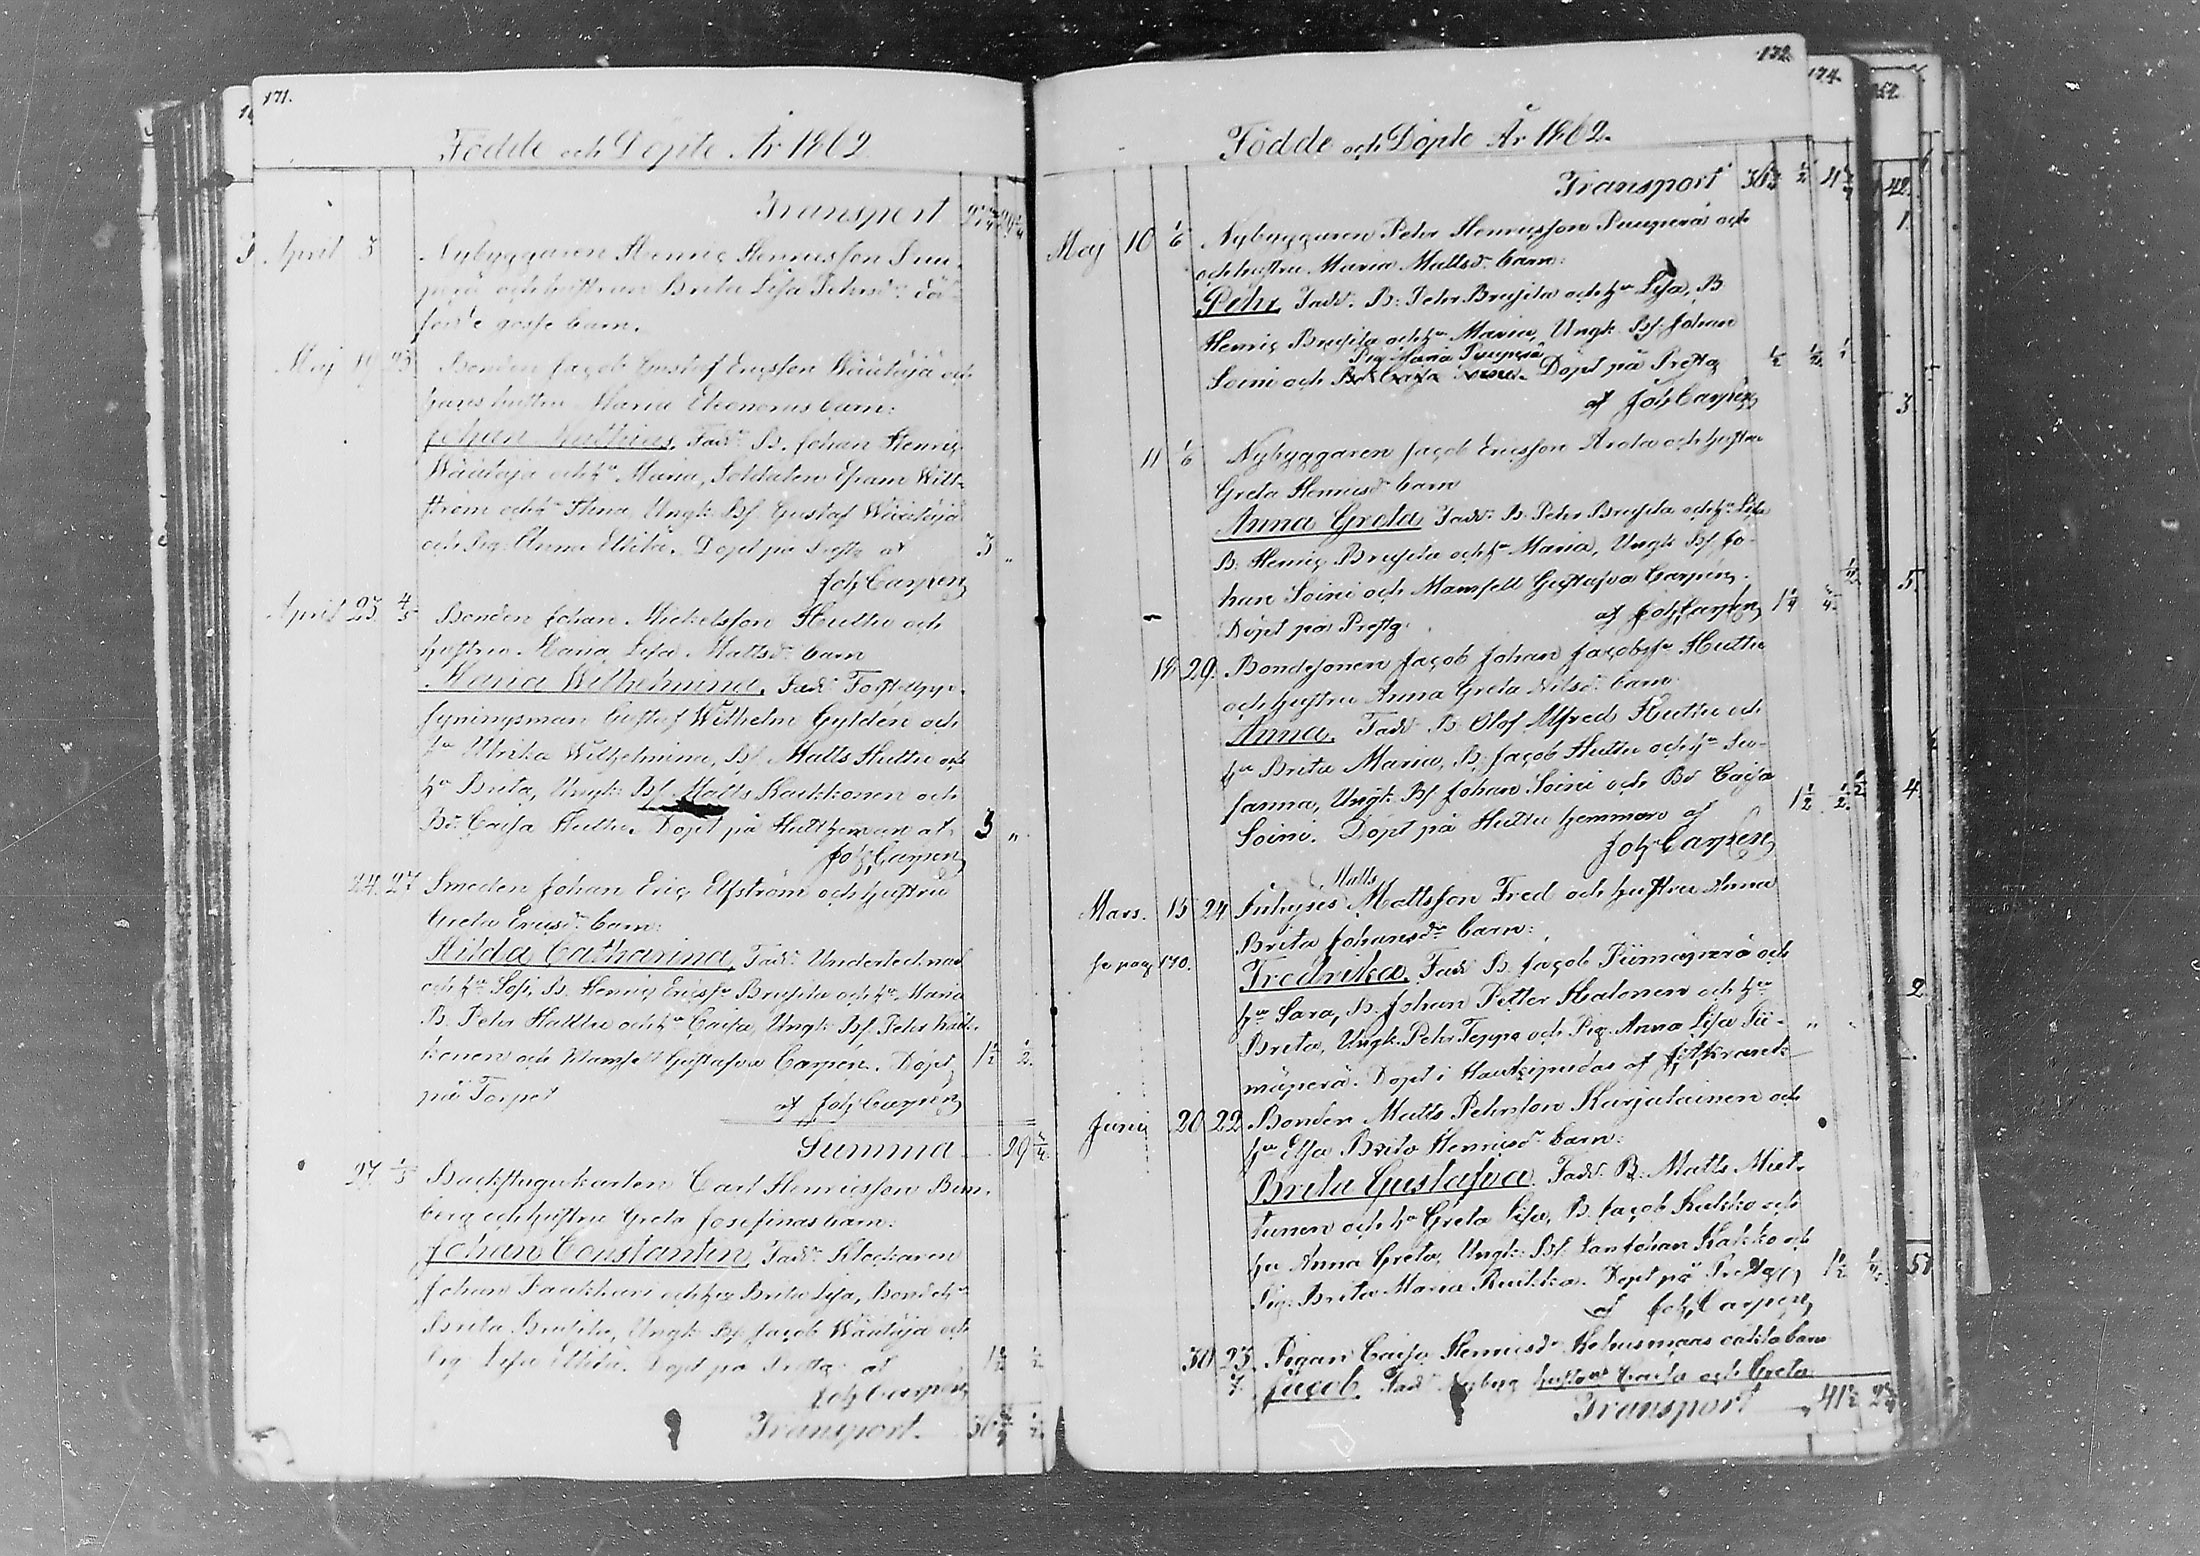 171.
Födde och Döpte År 1862
Transport 27 3/4 29 3/4
April 3 Nybyggaren Henric Henricsson Puu-
perä och hustrun Brita Lisa Pehrsdr död-
född gosse barn.
Maj 19 25 Bonden Jacob Gustaf Ericsson Wäätäjä och
hans hustru Maria Ekenoras barn:
Johan Mathias, Fadd. B. Johan Henric
Wäätäjä och hu Maria, Soldaten Efram Witt-
ström och hu Stina, Ungk. Bs. Gustaf Wäätäjä
och Pig. Anna Ellilä. Döpt på Prestg. af 3 "
Joh. Carpén
April 23 4/5 Bonden Johan Mickelsson Huttu och
hustru Maria Lisa Mattsdr barn
Maria Wilhelmina, Fadd. Forstupp-
syningsman Gustaf Wilhelm Gyldén och
hu Ulrika Wilhelmina, Bs. Matts Huttu och
hu Brita, Ungk. Bs. Matts Kaikkonen och
Bd. Caisa Huttu. Döpt på Hutt hemman af 3 "
Joh. Carpén
24. 27 Smeden Johan Eric Elfström och hustru
Greta Ericsdr barn:
Hilda Catharina, Fadd. Undertecknad
och hu Sofi, B. Henric Ericss. Brusila och hu Maria
B. Pehr Huttu och hu Caisa, Ungk. Bs. Pehr Kaik-
konen och Mamsell Gustafva Carpén. Döpt 1 1/2 1/2
på Torpet af Joh. Carpén
Summa 29 3/4
27 1/5 Backstugukarlen Carl Henricsson Bim-
berg och hustru Greta Josefinas barn:
Johan Constantin, Fadd. Klockaren
Johan Paakkari och hu Brita Lisa, Bondeh.
Brita Brusila, Ungk. Bs. Jacob Wäätäjä och
Pig. Lisa Ellilä. Döpt på Prestg. af 1 1/2 1/2
Joh. Carpén
Transport. 36 3/4 1/2
172.
174.
Födde och Döpte År 1862.
Transport 36 3/4 1/2
42.
Maj 10 1/6 Nybyggaren Pehr Henricsson Puuperä och
och hustru Maria Mattsdr barn:
Pehr, Fadd. B. Pehr Brusila och hu Lisa, B.
Henric Brusila och hu Maria, Ungk. Bs. Johan
Pig. Maria Puuperä
Soini och Döpt på Prestg. 1/2 1/2 1/2
af Joh. Carpén
11 1/6 Nybyggaren Jacob Ericsson Arola och hustru
Greta Henricsdr barn
Anna Greta Fadd. B. Pehr Brusila och hu Lisa
B. Henric Brusila och hu Maria, Ungk. Bs. Jo-
han Soini och Mamsell Gustafva Carpén.
Döpt på Prestg. af Joh. Carpén 1 1/4
18 29. Bondesonen Jacob Johan Jacobss. Huttu
och hustru Anna Greta Nilsdr barn
Anna, Fadd. B. Olof Alfred Huttu och
hu Brita Maria, B. Jacob Huttu och hu Su-
sanna, Ungk. Bs. Johan Soini och Bd. Caisa
Soini. Döpt på Huttu hemman af 1 1/2 1/2 1/2
Joh. Carpén
Matts
Mars. 15 24 Inhyses Mattsson Fred och hustru Anna
Brita Johansdr barn:
se pag 170. Fredrika, Fadd. B. Jacob Piimäperä och
hu Sara, B. Johan Petter Halonen och hu
Brita, Ungk. Pehr Teppo och Pig. Anna Lisa Pii-
mäperä. Döpt i Haukipudas af
Juni 20 22 Bonden Matts Pehrsson Karjalainen och
hu Elsa Brita Henricsdr barn:
Brita Gustafva. Fadd. B. Matts Miet-
tunen och hu Greta Lisa, B. Jacob Kukko och
hu Anna Greta, Ungk. Bs. Lars Johan Kakko och
Pig. Brita Maria Kukko. Döpt på Prestg. 1 1/2
af Joh. Carpén
30 23/7 Pigan Caisa Henricsdr oäkta barn
Jacob. Fadd. Nybyg. hustrur Caisa och Greta
Transport 41 1/2
1.
3
5.
4
2
51